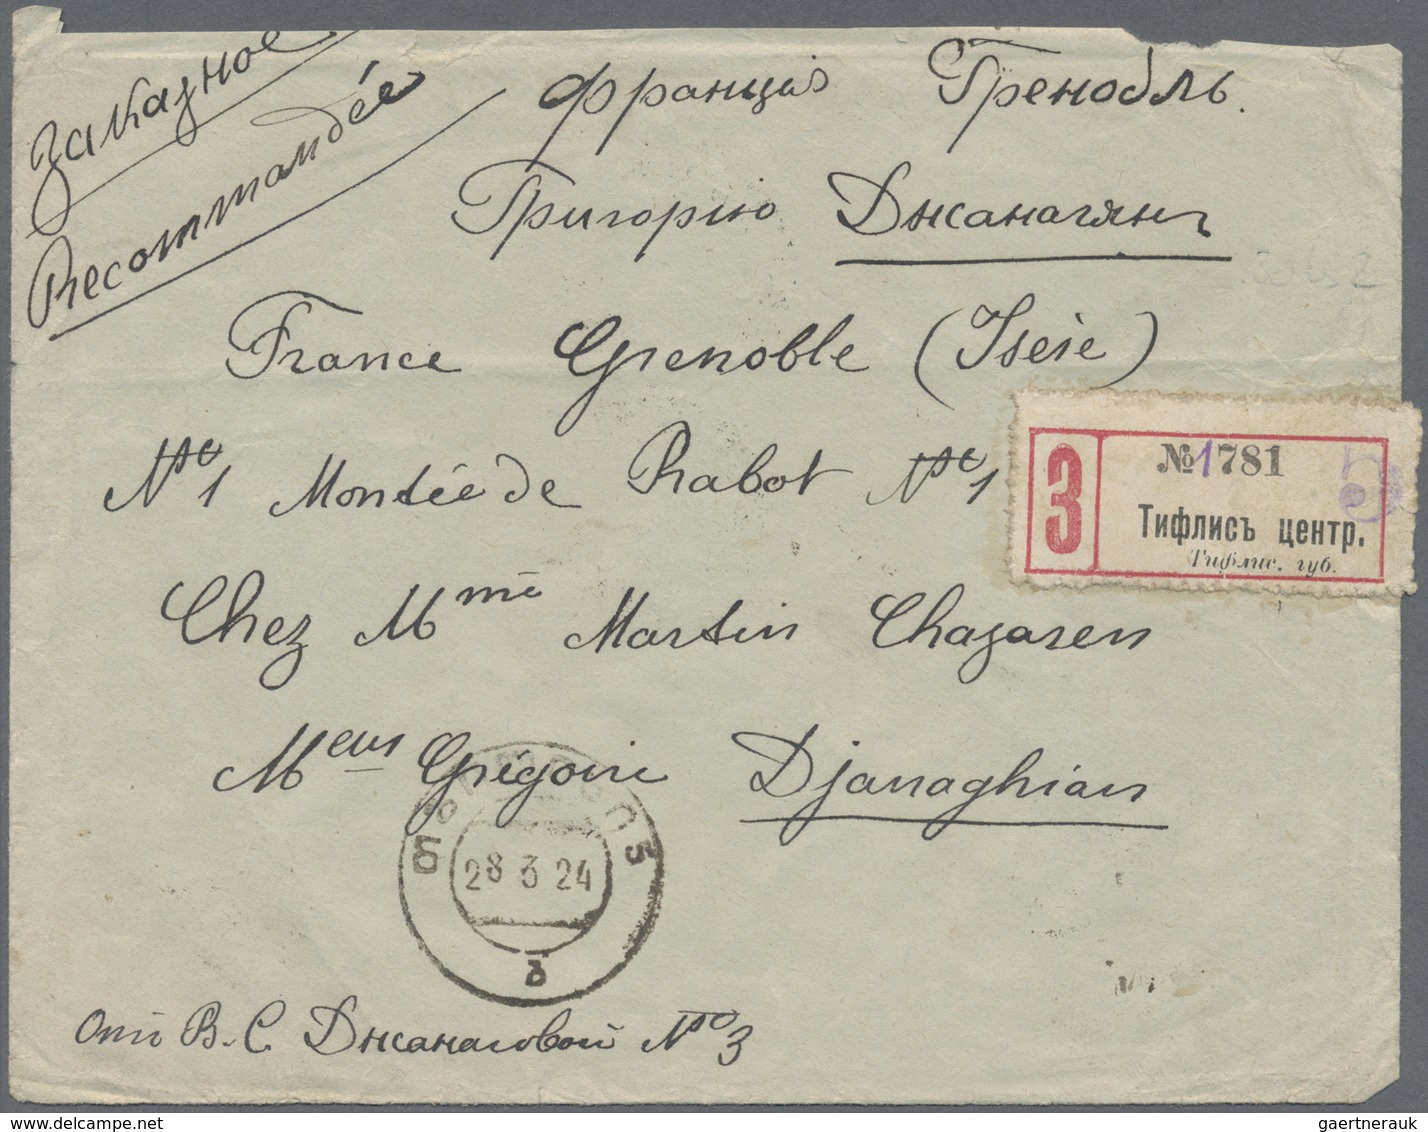 заказное
Recommandée
Франція Гренобль.
Григорію Джанагянъ
France Grenoble (Isère)
№1 Montée de Rabot №1
Chez Mme Martin Chazaren
Meur Grégoire Djanaghian
3
№1781
5
Тифлисъ центр.
Тифлис. губ.
28 3 24
б
Отъ В. С. Джанаговой № 3
gaertnerauk